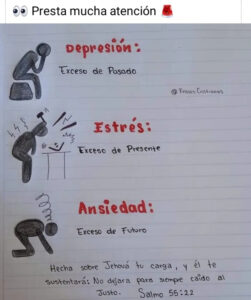 👀 Presta mucha atención 🚨
Depresión:
Exceso de Pasado
@ Frases Cristianas
Estrés:
Exceso de Presente
Ansiedad:
Exceso de Futuro
Hecha sobre Jehová tu carga, y él te
sustentará; No dejara para siempre caído al
Justo. Salmo 55:22